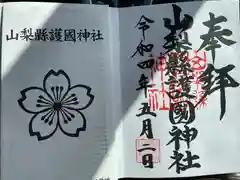 奉拝
山梨縣護國神社
令和四年五月二日
山梨縣護國神社